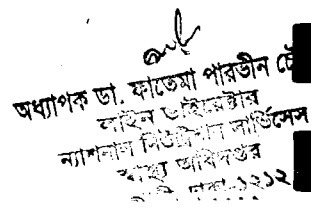 অধ্যাপক ডা. ফাতেমা পারভীন চৌ
লাইন ডাইরেক্টর
ন্যাশনাল নিউট্রিশন সার্ভিসেস
স্বাস্থ্য অধিদপ্তর
ঢাকা-১২১২